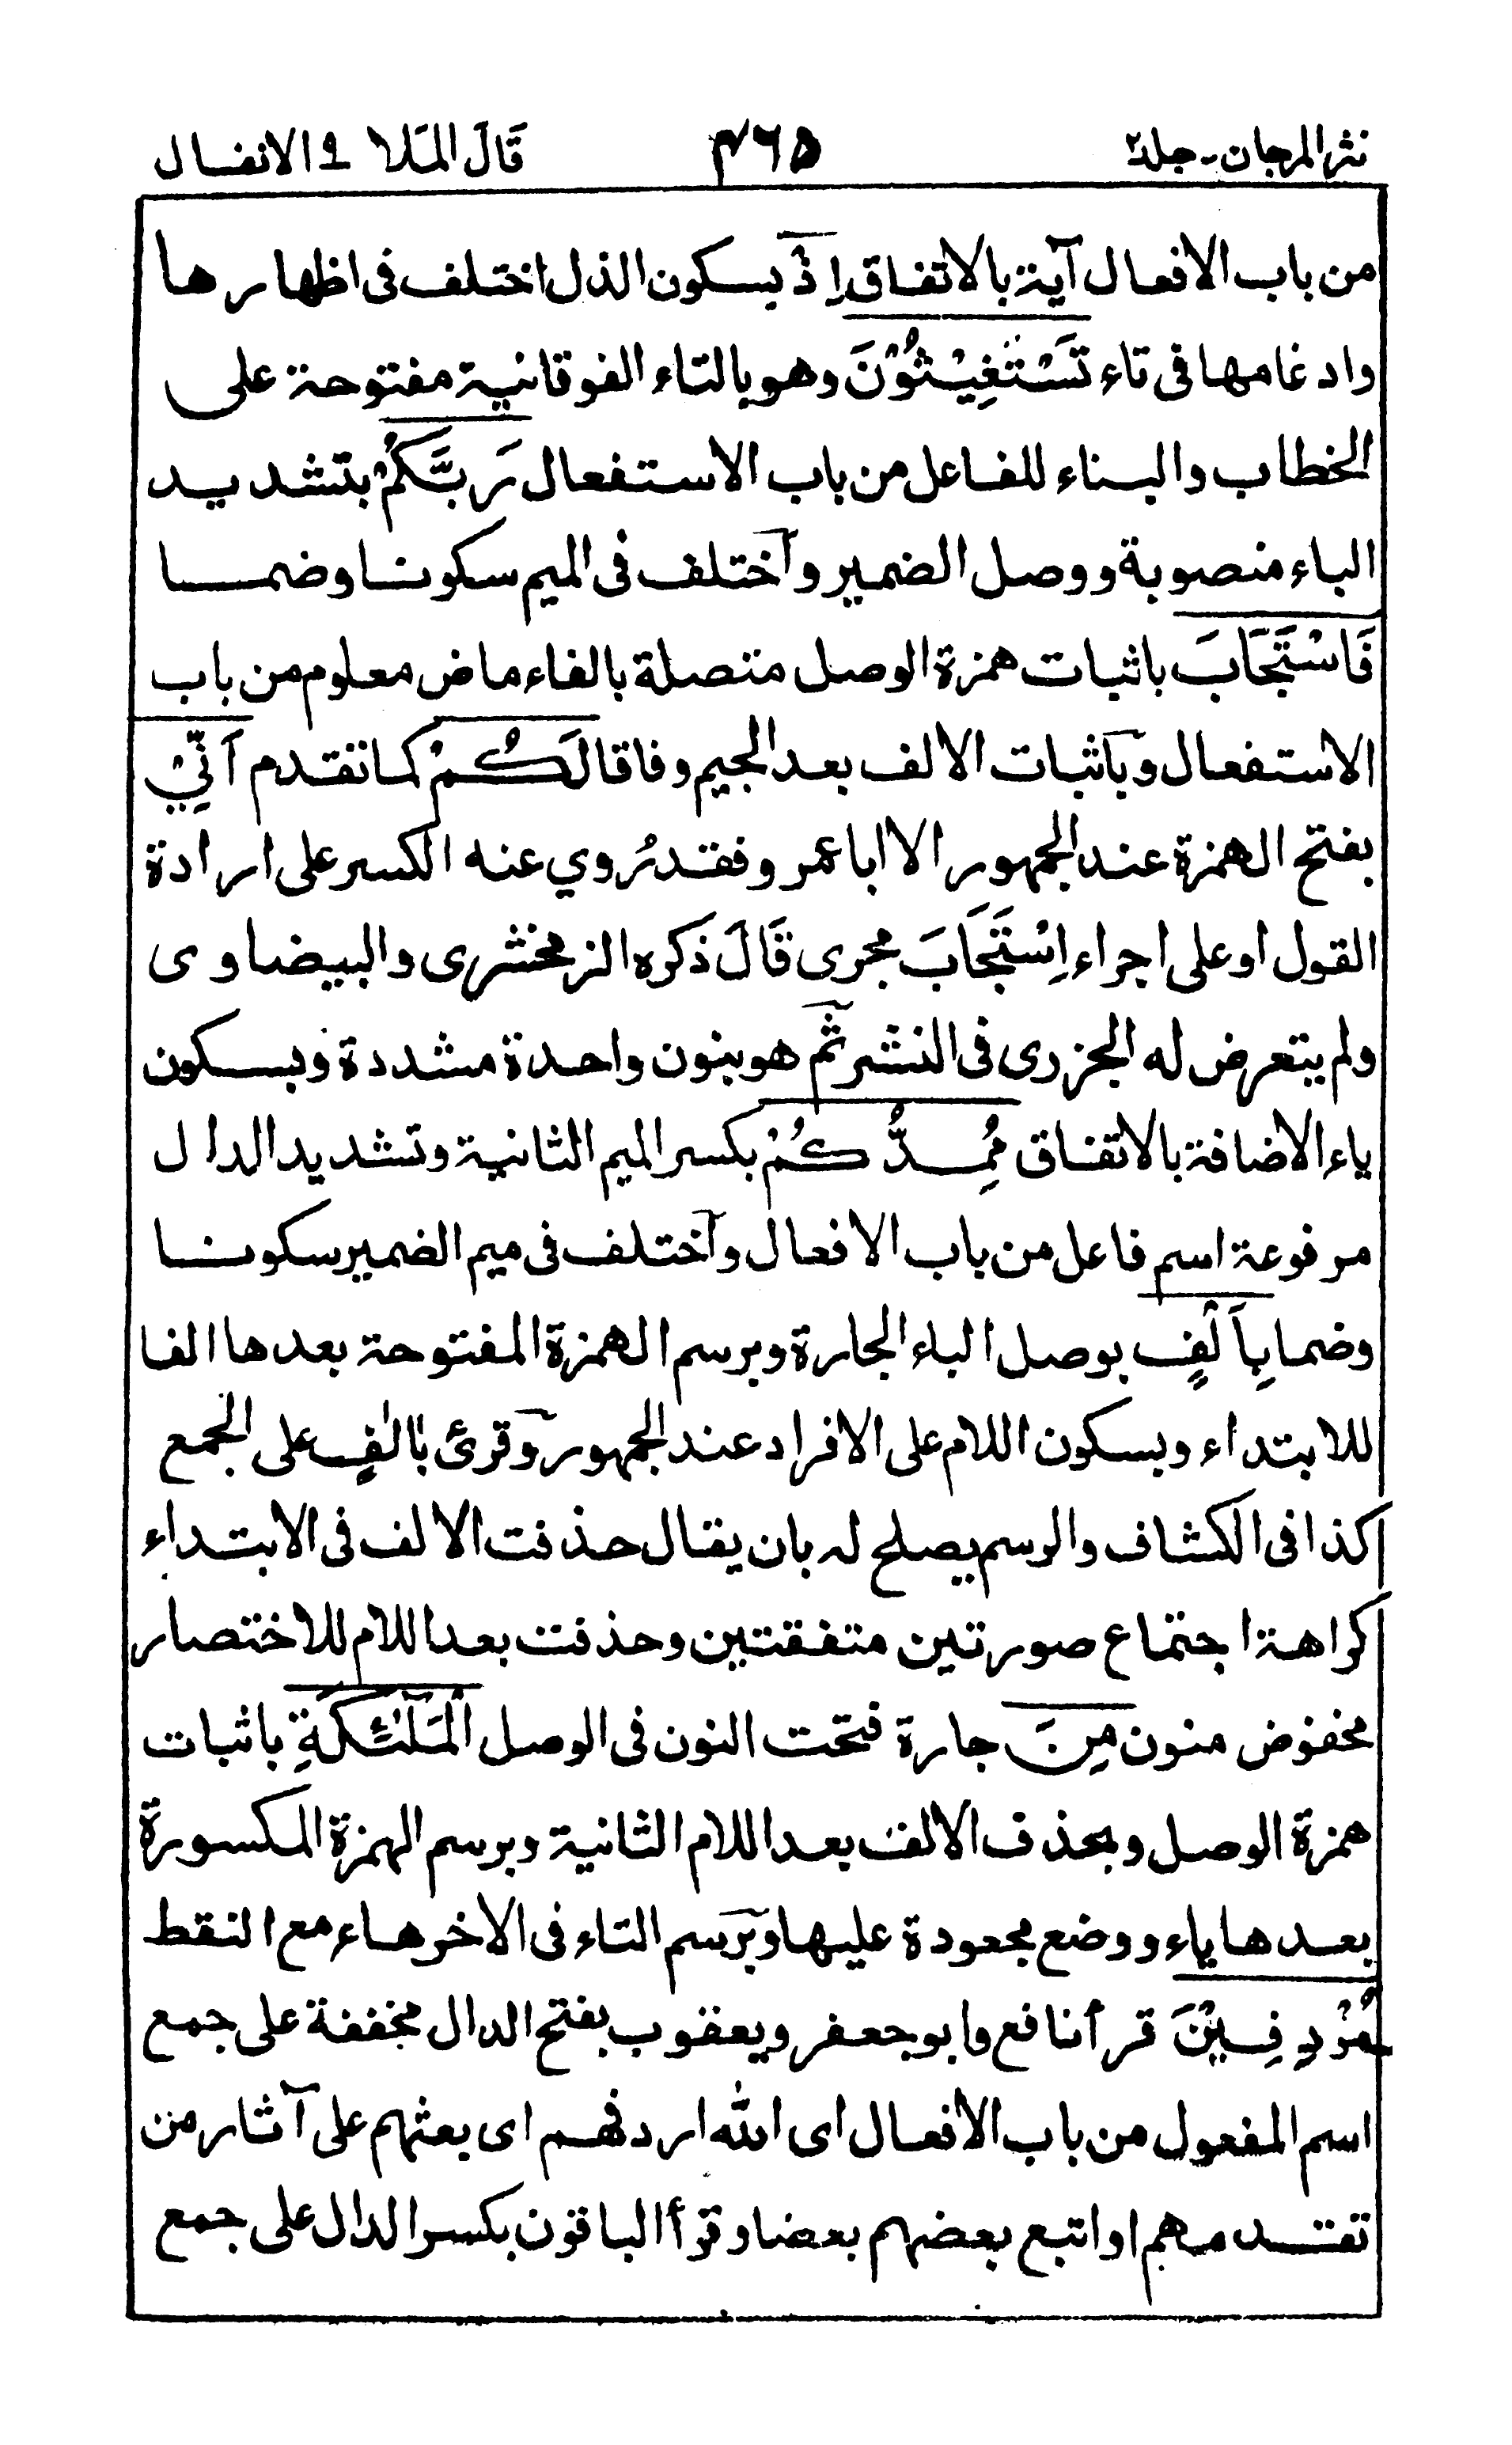 نثر المرجان - جلد٢ ٤٦٥ قَالَ المَلا ٩ الانفال
من باب الافعال آية بالاتفاق اِذْ بسكون الذل اختلف فى اظهارها
وادغامها فى تاء تَسْتَغِيْثُوْنَ وهو بالتاء الفوقانية مفتوحة على
الخطاب والبناء للفاعل من باب الاستفعال رَبَّكُمْ بتشديد
الباء منصوبة ووصل الضمير واختلف فى الميم سكونا وضما
فَاسْتَجَابَ باثبات همزة الوصل متصلة بالفاء ماض معلوم من باب
الاستفعال وباثبات الالف بعد الجيم وفاقا لَكُمْ كما تقدم اَنِّيْ
بفتح الهمزة عند الجمهور الا ابا عمرو فقد رُوي عنه الكسر على ارادة
القول او على اجراء اِسْتَجَابَ مجرى قَالَ ذكره الزمخشرى والبيضاوى
ولم يتعرض له الجزرى فى النشر ثم هو بنون واحدة مشددة وبسكون
ياء الاضافة بالاتفاق مُمِدُّكُمْ بكسر الميم الثانية وتشديد الدال
مرفوعة اسم فاعل من باب الافعال واختلف فى ميم الضمير سكونا
وضما بِاَلْفٍ بوصل الباء الجارة وبرسم الهمزة المفتوحة بعدها الفا
للابتداء وبسكون اللام على الافراد عند الجمهور وقرئ بٰالٰفٍ على الجمع
كذا فى الكشاف والرسم يصلح له بان يقال حذفت الالف فى الابتداء
كراهة اجتماع صورتين متفقتين وحذفت بعد اللام للاختصار
مخفوض منون مِنَ جارة فتحت النون فى الوصل الْمَلٰٓئِكَةِ باثبات
همزة الوصل وبحذف الالف بعد اللام الثانية وبرسم الهمزة المكسورة
بعدها ياء ووضع مجعودة عليها وبرسم التاء فى الاخر هاء مع النقط
مُرْدِفِيْنَ قرأ نافع وابو جعفر ويعقوب بفتح الدال مخففة على جمع
اسم المفعول من باب الافعال اى الله اردفهم اى بعثهم على آثار من
تقدمهم او اتبع بعضهم بعضا وقرأ الباقون بكسر الدال على جمع